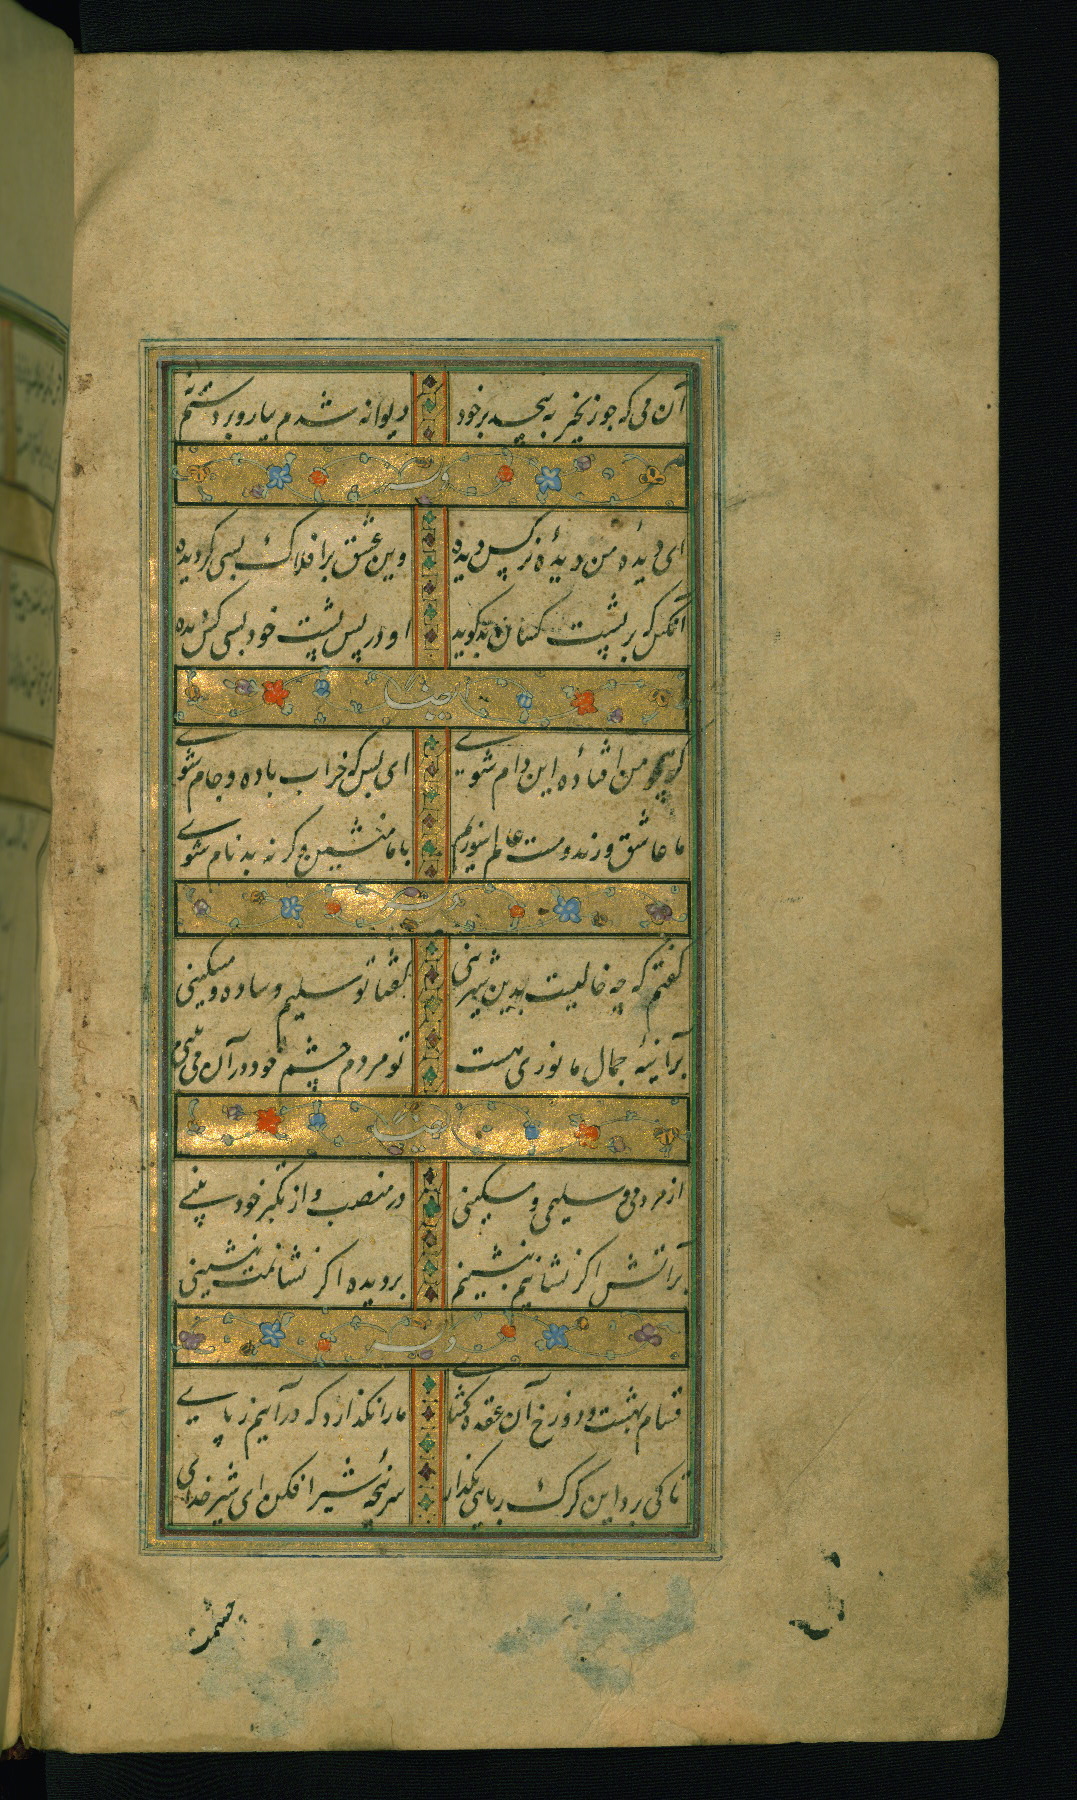 آن می که چو زنجیر به پیچد بر خود دیوانه شدم بیار و بر دستم
وله
ای دیده من دیدهٔ نرکس دیده وین عشق بر افلاک بسی کردیده
آنکس که بر پشت کسان بد کوید او در پس پشت خود بسی کس دیده
ایضا
کر همچو من افتاده این دام شوی ای بس که خراب باده و جام شوی
ما عاشق و رند و مست عالم سوزیم با ما منشین و کر نه بد نام شوی
وله
کفتم که چه خالیست بدین شیرینی کفتا تو سلیم و ساده و مسکینی
بر آینهٔ جمال ما نوری هست تو مردم چشم خود در آن می بینی
ایضا
از مردمی و سلیمی و مسکینی در منصب و از تکبر خود بینی
بر آتش اکر نشانیم بنشینم بر دیده اکر نشانمت ننشینی
وله
قسام بهشت و دوزخ آن عقده کشای ما را نکذارد که در آییم ز پای
تا کی رود این کرک ربایی بکذار سر پنجهٔ شیر افکن ای شیر خدای